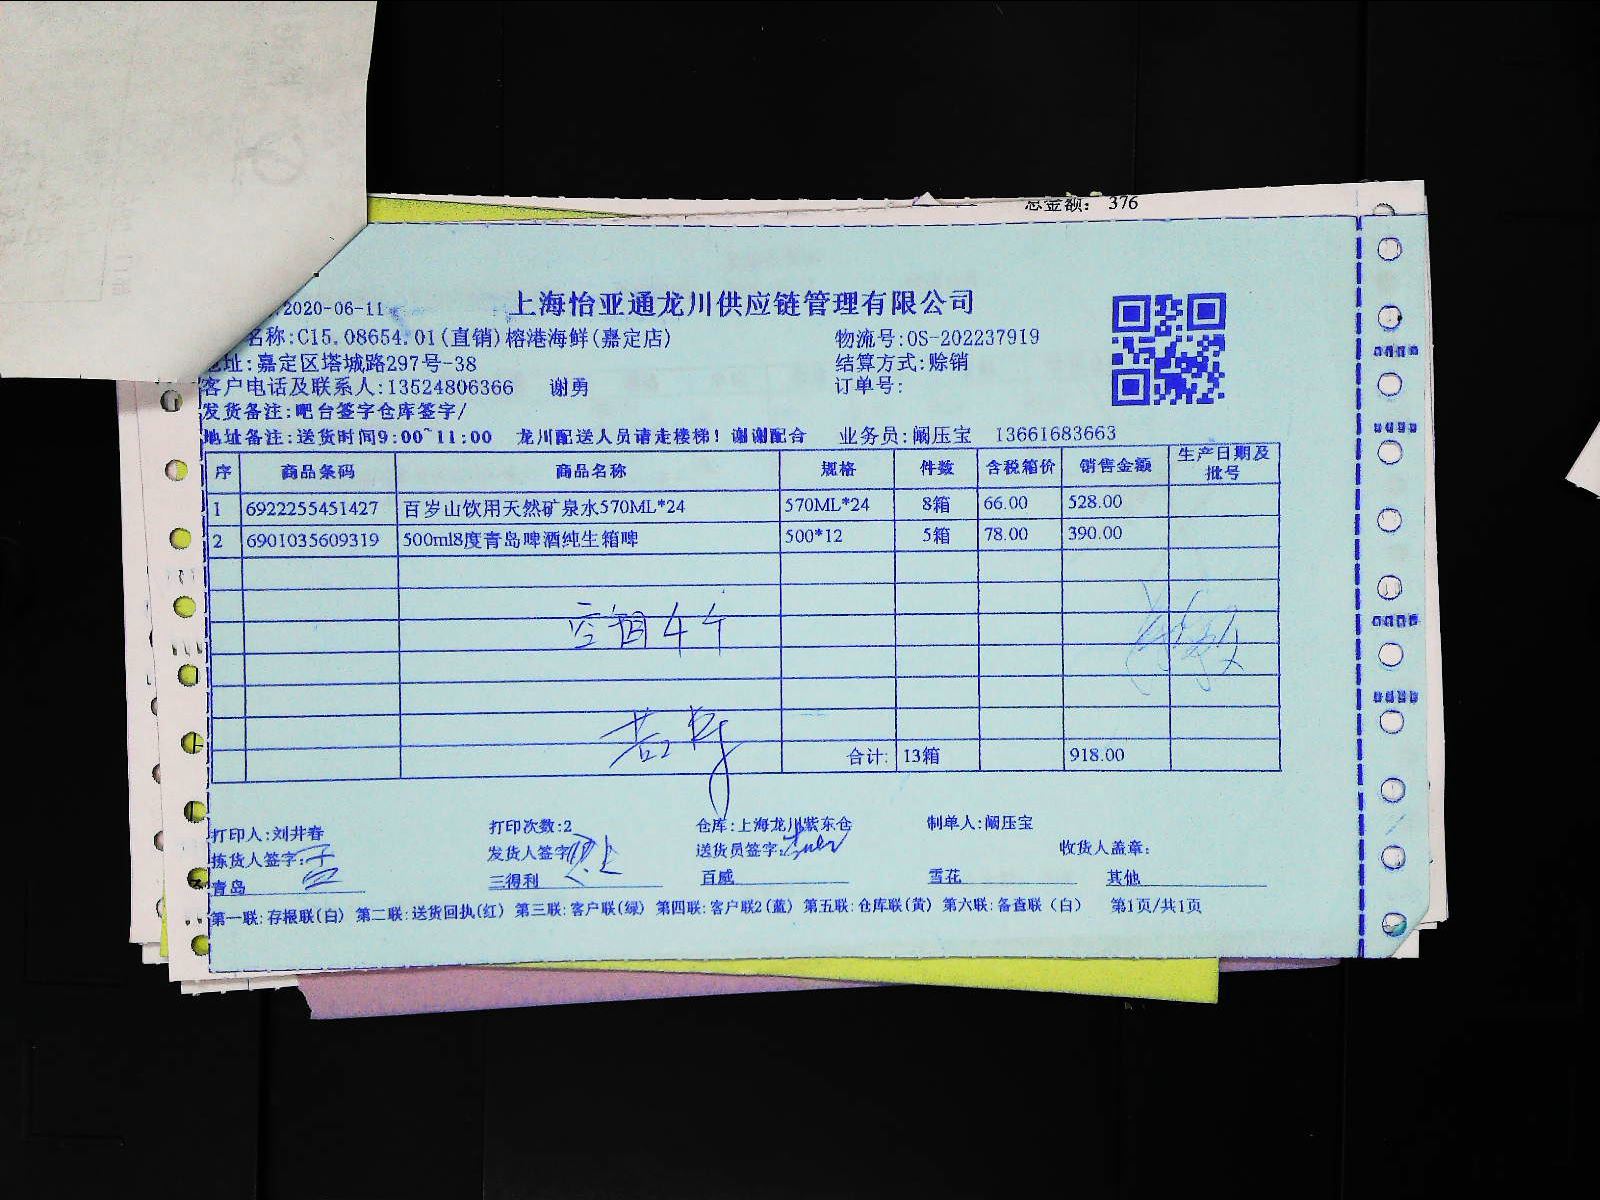 总金额: 376
2020-06-11
上海怡亚通龙川供应链管理有限公司
名称:C15.08654.01(直销)榕港海鲜(嘉定店) 物流号:OS-202237919
地址:嘉定区塔城路297号-38 结算方式:赊销
客户电话及联系人:13524806366 谢勇 订单号:
发货备注:吧台签字仓库签字/
地址备注:送货时间9:00~11:00 龙川配送人员请走楼梯!谢谢配合 业务员:阚压宝 13661683663
序 商品条码 商品名称 规格 件数 含税箱价 销售金额 生产日期及批号
1 6922255451427 百岁山饮用天然矿泉水570ML*24 570ML*24 8箱 66.00 528.00
2 6901035609319 500ml8度青岛啤酒纯生箱啤 500*12 5箱 78.00 390.00
空箱4个
合计: 13箱 918.00
打印人:刘井春 打印次数:2 仓库:上海龙川紫东仓 制单人:阚压宝
拣货人签字: 发货人签字 送货员签字: 收货人盖章:
青岛 三得利 百威 雪花 其他
第一联:存根联(白) 第二联:送货回执(红) 第三联:客户联(绿) 第四联:客户联2(蓝) 第五联:仓库联(黄) 第六联:备查联(白) 第1页/共1页